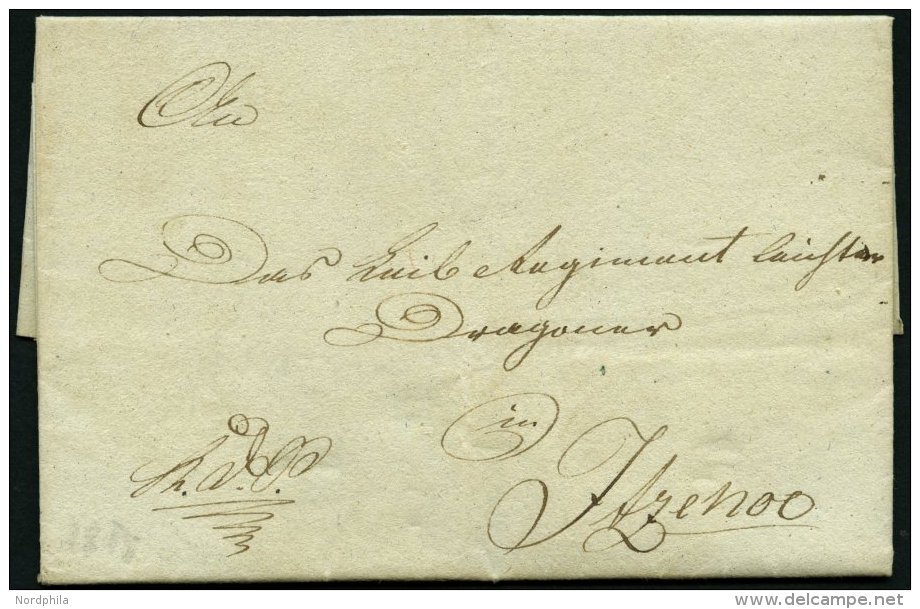 An
Das Leib Regiment leichter
Dragoner
in
Itzehoe
K. d. S.
Nordphila
www.delcampe.net